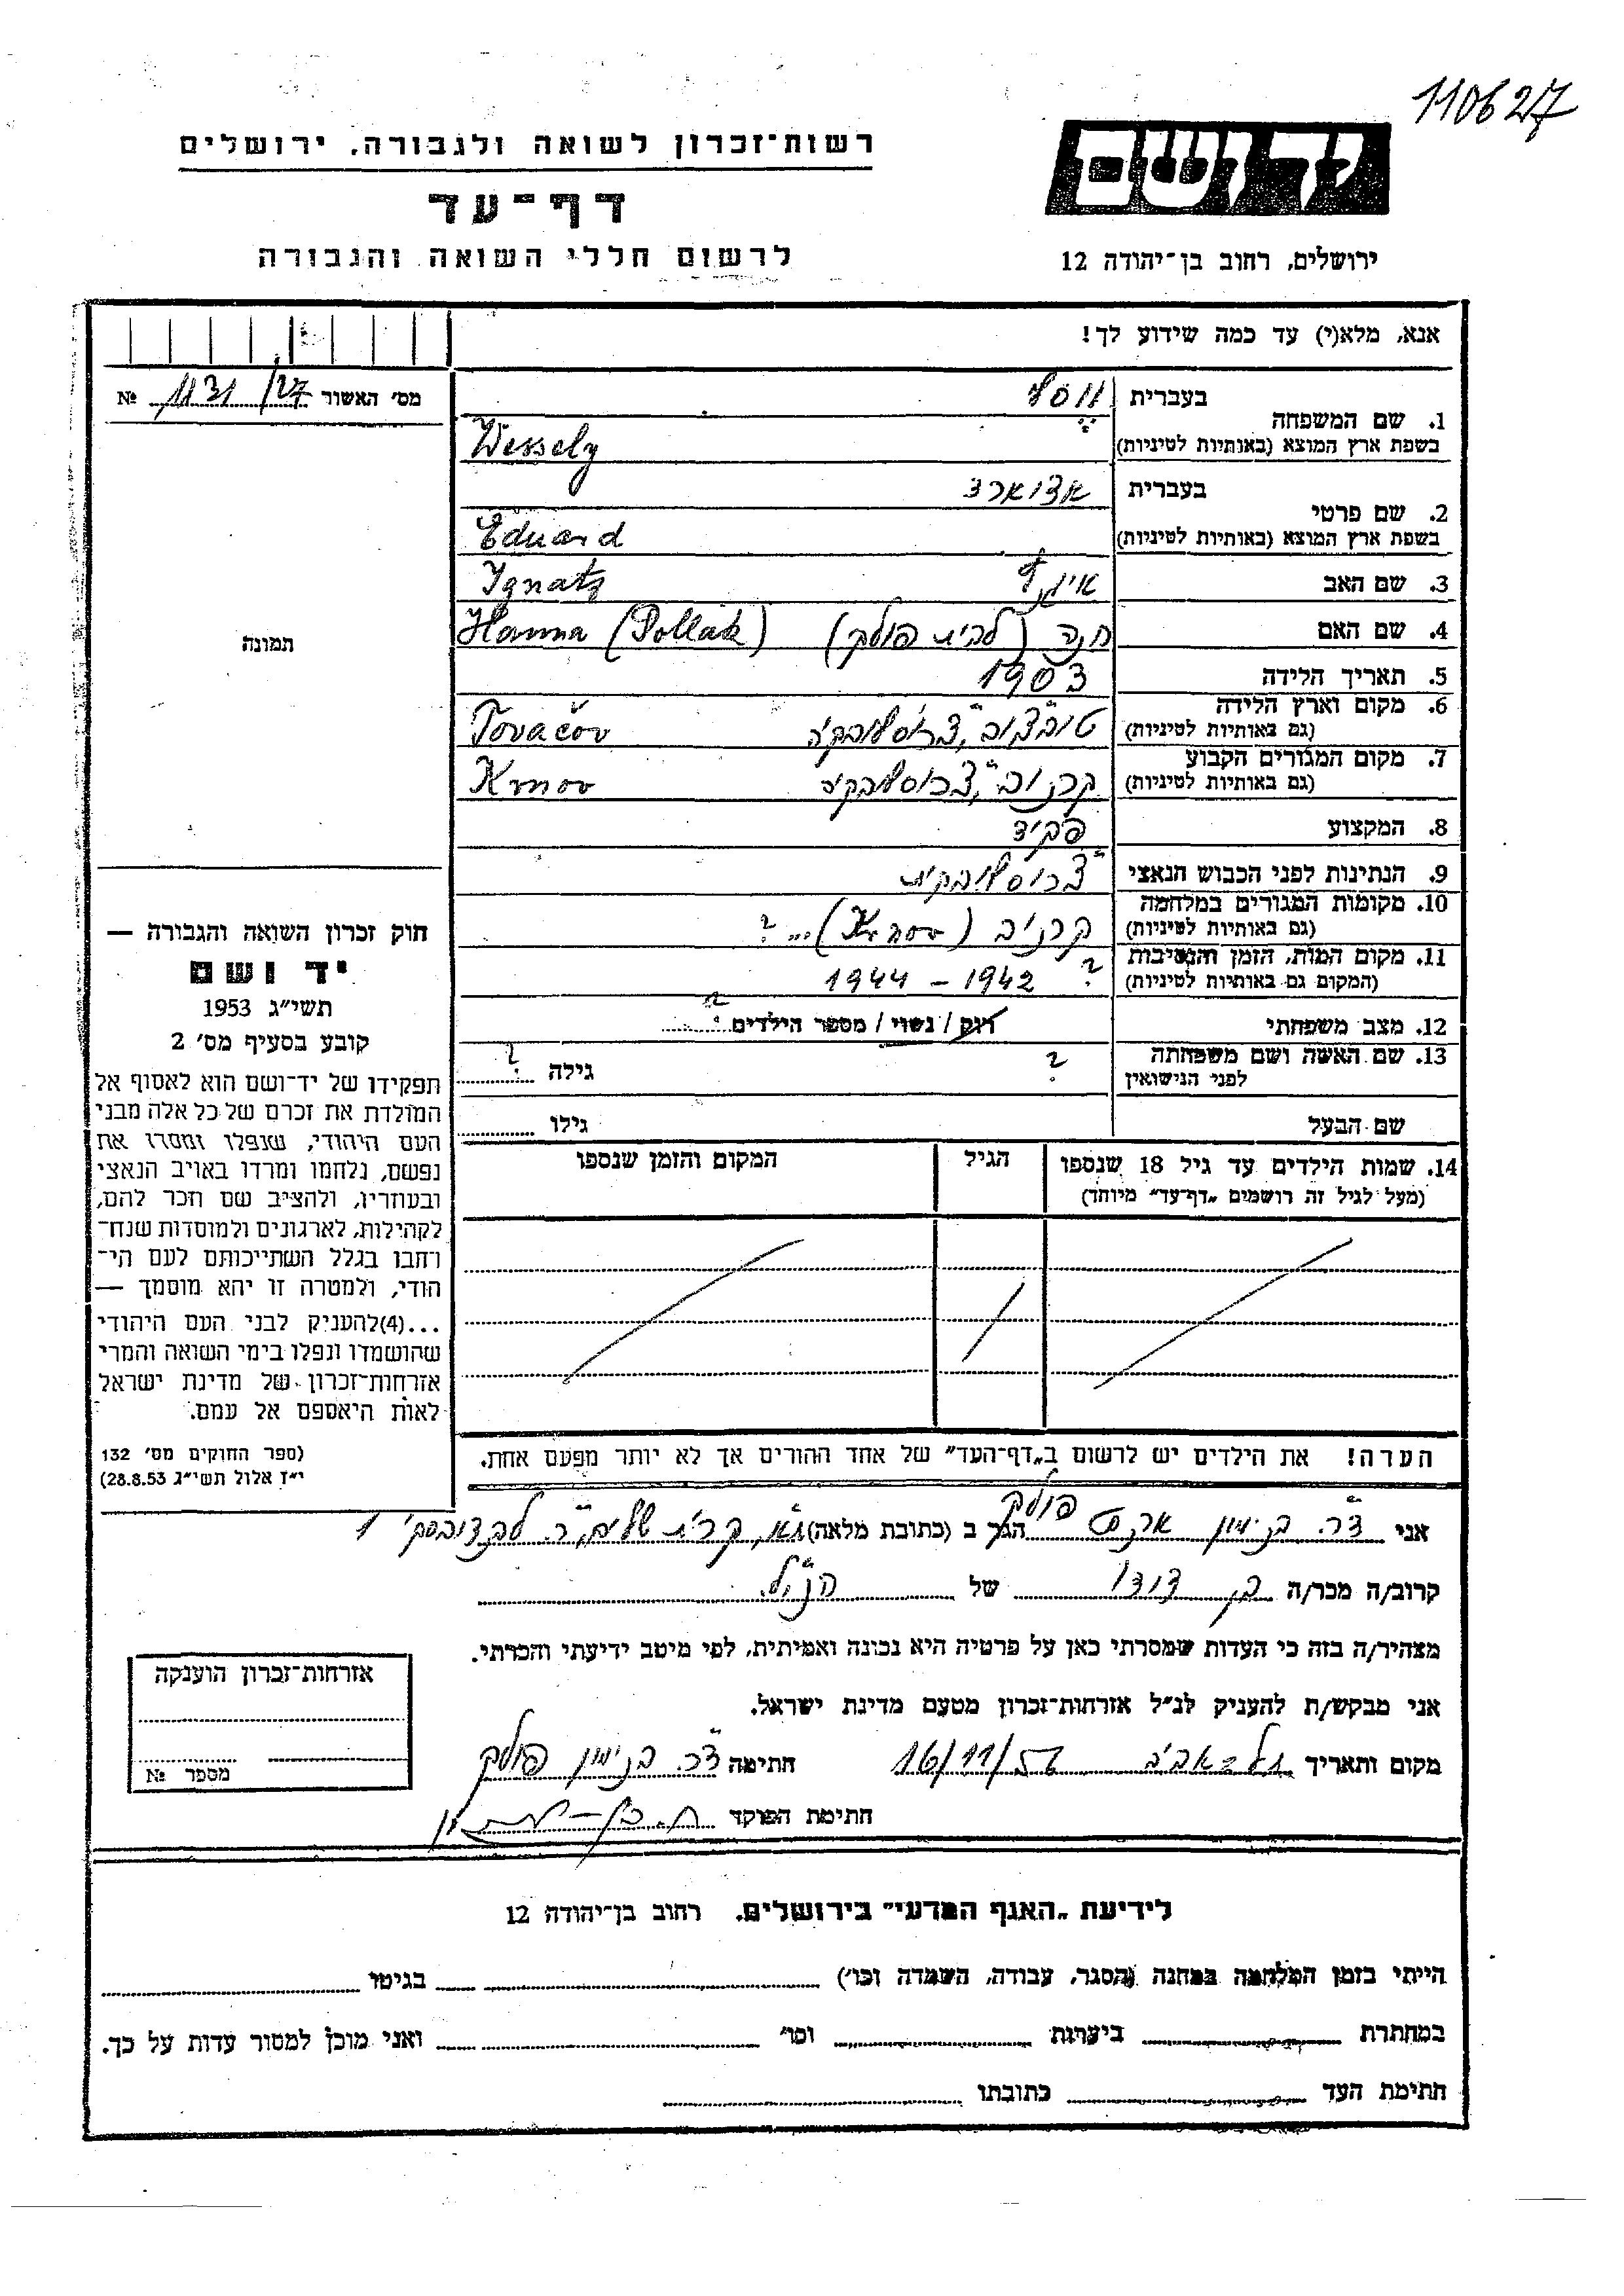 110627
יד ושם
רשות־זכרון לשואה ולגבורה, ירושלים
דף־עד
לרשום חללי השואה והגבורה
ירושלים, רחוב בן־יהודה 12
אנא, מלא(י) עד כמה שידוע לך!
מס׳ האשור 1131/27 №
תמונה
1. שם המשפחה
בעברית ווסלי
בשפת ארץ המוצא (באותיות לטיניות) Wessely
2. שם פרטי
בעברית אדוארד
בשפת ארץ המוצא (באותיות לטיניות) Eduard
3. שם האב Ignatz
4. שם האם חנה (לבית פולק) Hanna (Pollak)
5. תאריך הלידה 1903
6. מקום וארץ הלידה
(גם באותיות לטיניות) טובצוב, צ׳כוסלובקיה Tovačov
7. מקום המגורים הקבוע
(גם באותיות לטיניות) קרנוב, צ׳כוסלובקיה Krnov
8. המקצוע פקיד
9. הנתינות לפני הכבוש הנאצי צ׳כוסלובקית
10. מקומות המגורים במלחמה
(גם באותיות לטיניות) קרנוב (Krnov) ...?
11. מקום המות, הזמן והנסיבות
(המקום גם באותיות לטיניות) ? 1942 – 1944
12. מצב משפחתי רווק / נשוי / מספר הילדים ?
13. שם האשה ושם משפחתה
לפני הנישואין ? גילה ?
שם הבעל גילו
14. שמות הילדים עד גיל 18 שנספו
(מעל לגיל זה רושמים „דף־עד״ מיוחד)
הגיל
המקום והזמן שנספו
חוק זכרון השואה והגבורה —
יד ושם
תשי״ג 1953
קובע בסעיף מס׳ 2
תפקידו של יד־ושם הוא לאסוף אל
המולדת את זכרם של כל אלה מבני
העם היהודי, שנפלו ומסרו את
נפשם, נלחמו ומרדו באויב הנאצי
ובעוזריו, ולהציב שם וזכר להם,
לקהילות, לארגונים ולמוסדות שנח־
רחבו בגלל השתייכותם לעם הי־
הודי, ולמטרה זו יהא מוסמך —
...(4)להעניק לבני העם היהודי
שהושמדו ונפלו בימי השואה והמרי
אזרחות־זכרון של מדינת ישראל
לאות היאספם אל עמם.
(ספר החוקים מס׳ 132
י״ז אלול תשי״ג 28.8.53)
הערה! את הילדים יש לרשום ב„דף־העד״ של אחד ההורים אך לא יותר מפעם אחת.
אני ד״ר בנימין ארנסט פולק הגר ב (כתובת מלאה) ת״א, קרית שלום,
קרוב/ה מכר/ה בן דודו של הנ״ל
מצהיר/ה בזה כי העדות שמסרתי כאן על פרטיה היא נכונה ואמיתית, לפי מיטב ידיעתי והכרתי.
אני מבקש/ת להעניק לנ״ל אזרחות־זכרון מטעם מדינת ישראל.
מקום ותאריך תל־אביב 16/11/56 חתימה ד״ר בנימין פולק
חתימת הפוקד
אזרחות־זכרון הוענקה
מספר №
לידיעת „האגף המדעי״ בירושלים, רחוב בן־יהודה 12
הייתי בזמן המלחמה במחנה (הסגר, עבודה, השמדה וכו׳) בגיטו
במחתרת ביערות וכו׳ ואני מוכן למסור עדות על כך.
חתימת העד כתובתו